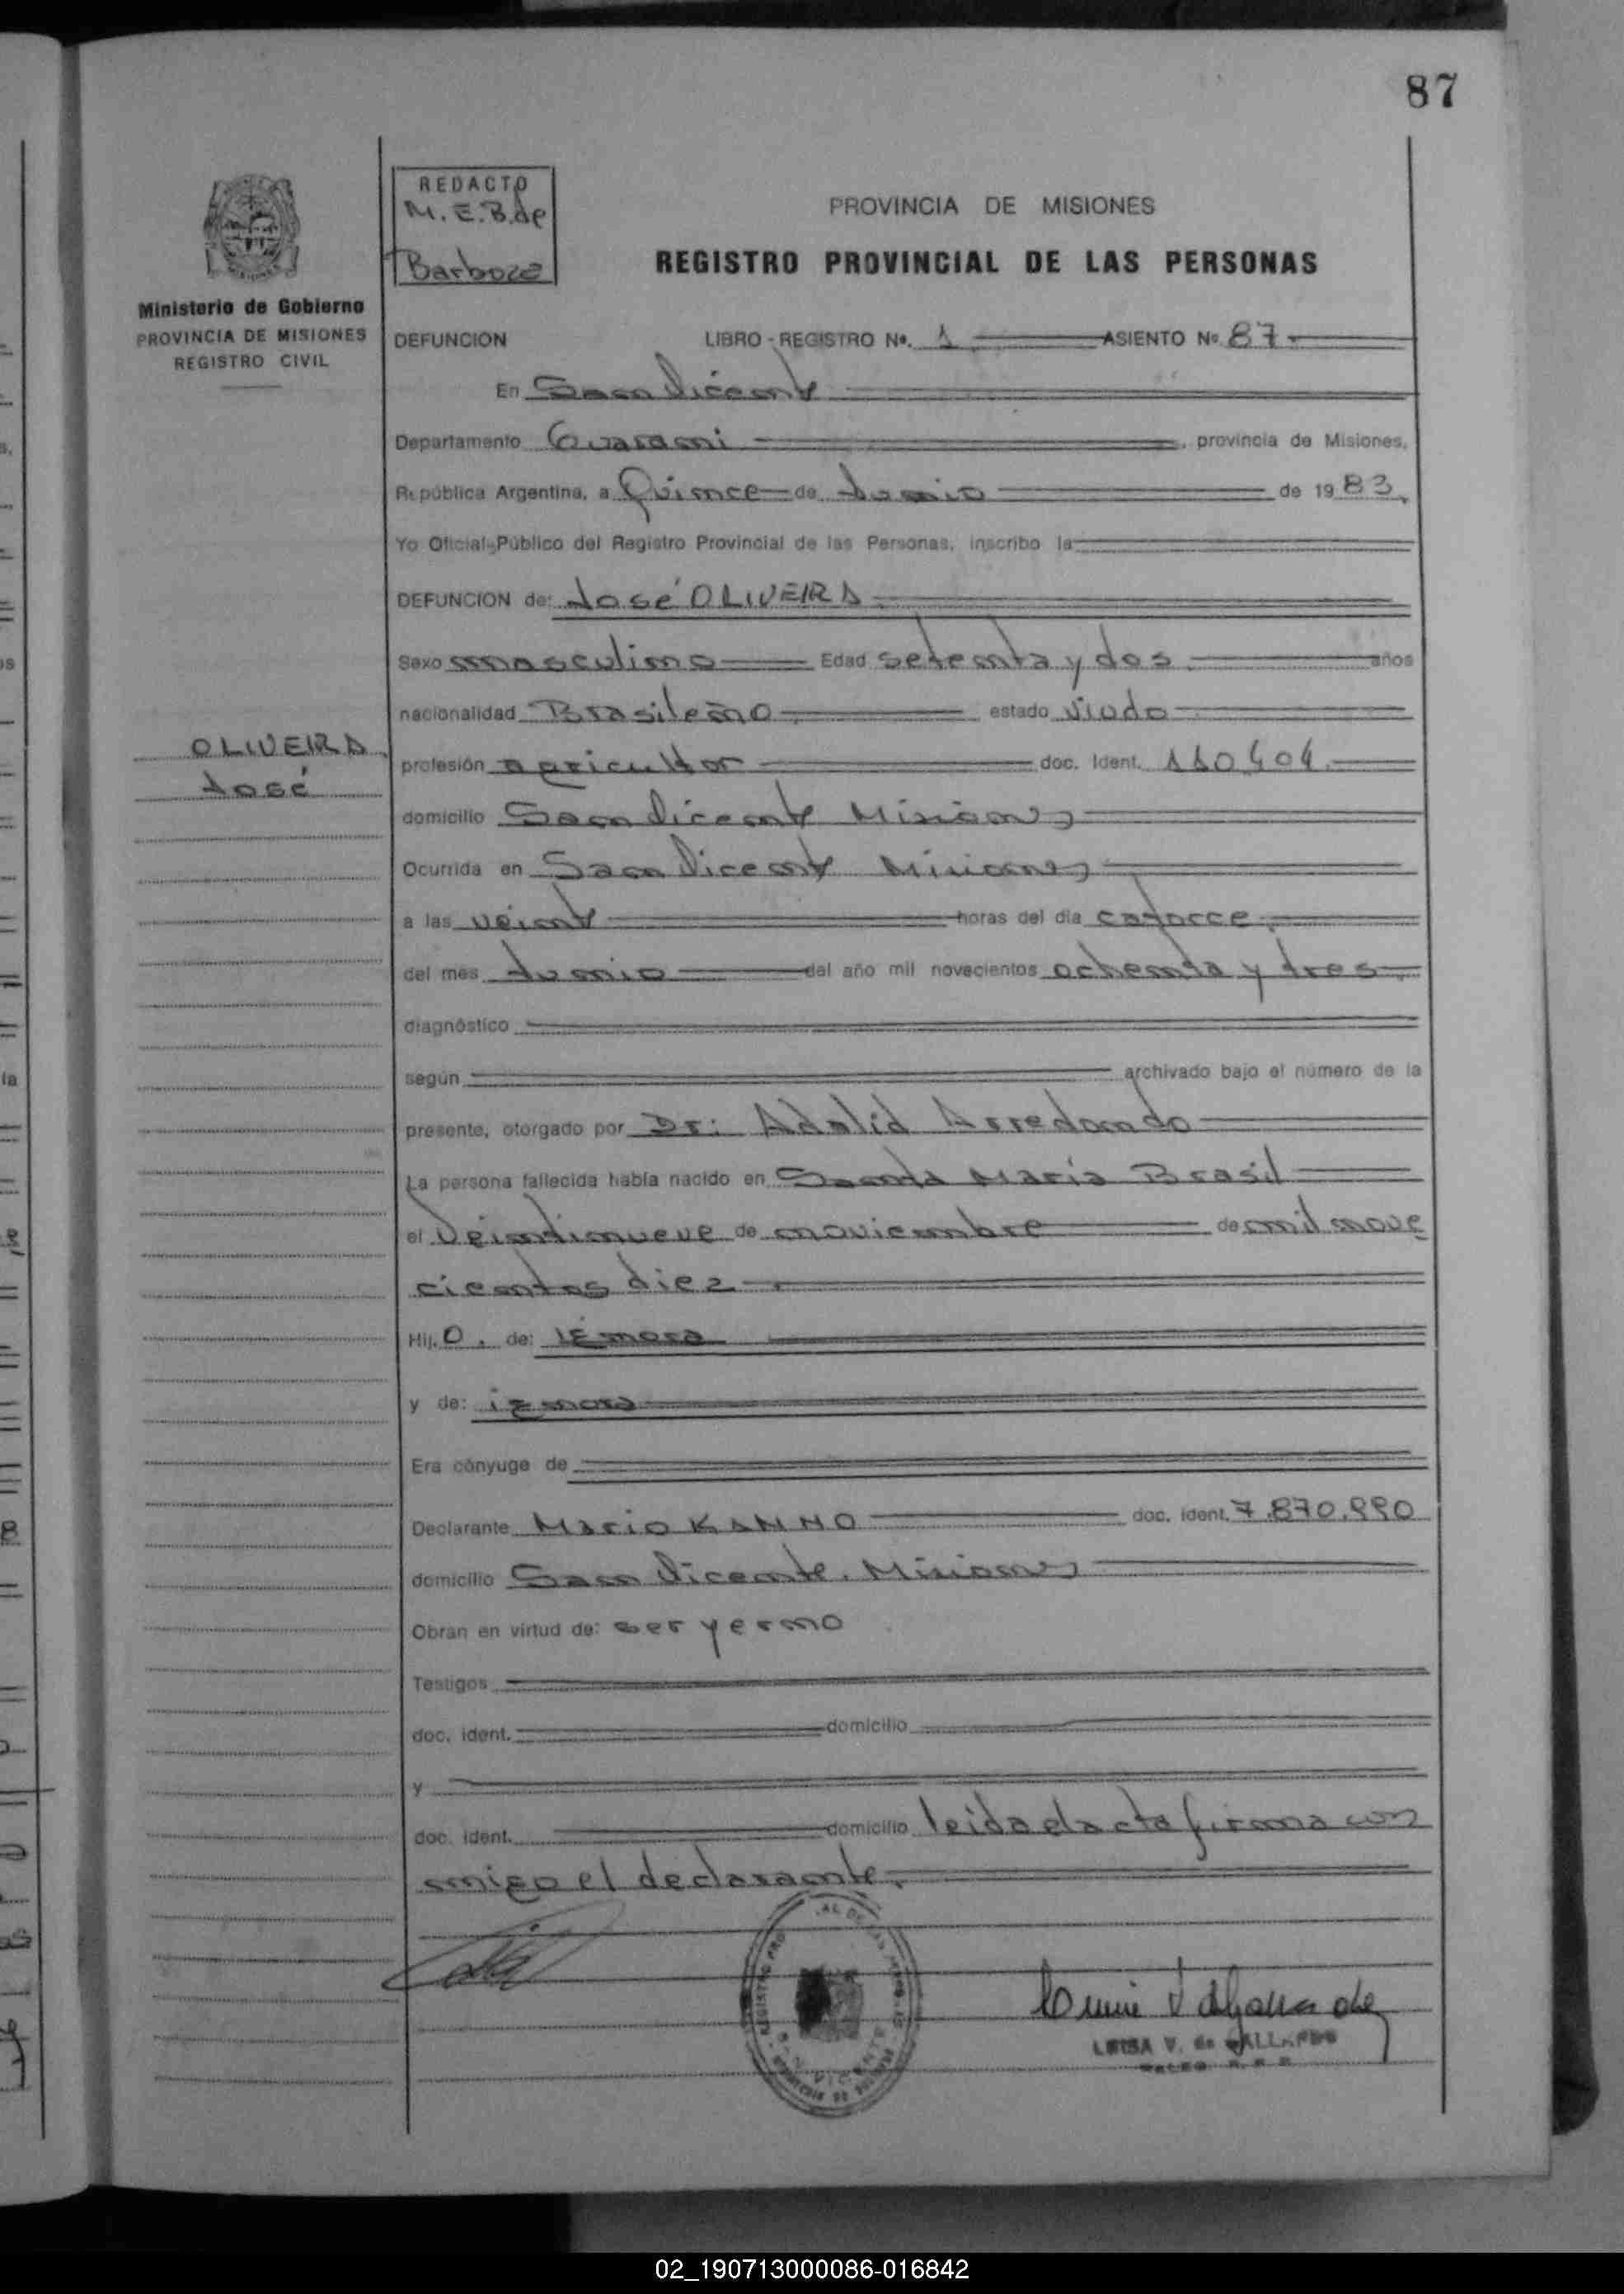 87
REDACTO
M. E. B. de
Barboza
PROVINCIA DE MISIONES
REGISTRO PROVINCIAL DE LAS PERSONAS
Ministerio de Gobierno
PROVINCIA DE MISIONES
REGISTRO CIVIL
DEFUNCION LIBRO - REGISTRO Nº. 1 ASIENTO Nº 87
En San Vicente
Departamento Guarani, provincia de Misiones,
República Argentina, a Quince de Junio de 1983.
Yo Oficial Público del Registro Provincial de las Personas, inscribo la
DEFUNCION de: José OLIVEIRA
Sexo masculino Edad setenta y dos años
nacionalidad Brasileño estado viudo
OLIVEIRA
José
profesión agricultor doc. Ident. 110404
domicilio San Vicente Misiones
Ocurrida en San Vicente Misiones
a las veinte horas del día catorce
del mes Junio del año mil novecientos ochenta y tres
diagnóstico
según archivado bajo el número de la
presente, otorgado por Dr: Adalid Arredondo
La persona fallecida había nacido en Santa María Brasil
el Veintinueve de noviembre de mil nove
cientos diez
Hij. o. de: Ignora
y de: ignora
Era cónyuge de
Declarante Mario KANNO doc. ident. 7.870.990
domicilio San Vicente. Misiones
Obran en virtud de: ser yerno
Testigos
doc. ident. domicilio
y
doc. ident. domicilio leida el acta firma con
migo el declarante.
LUISA V. de GALLARDO
02_190713000086-016842